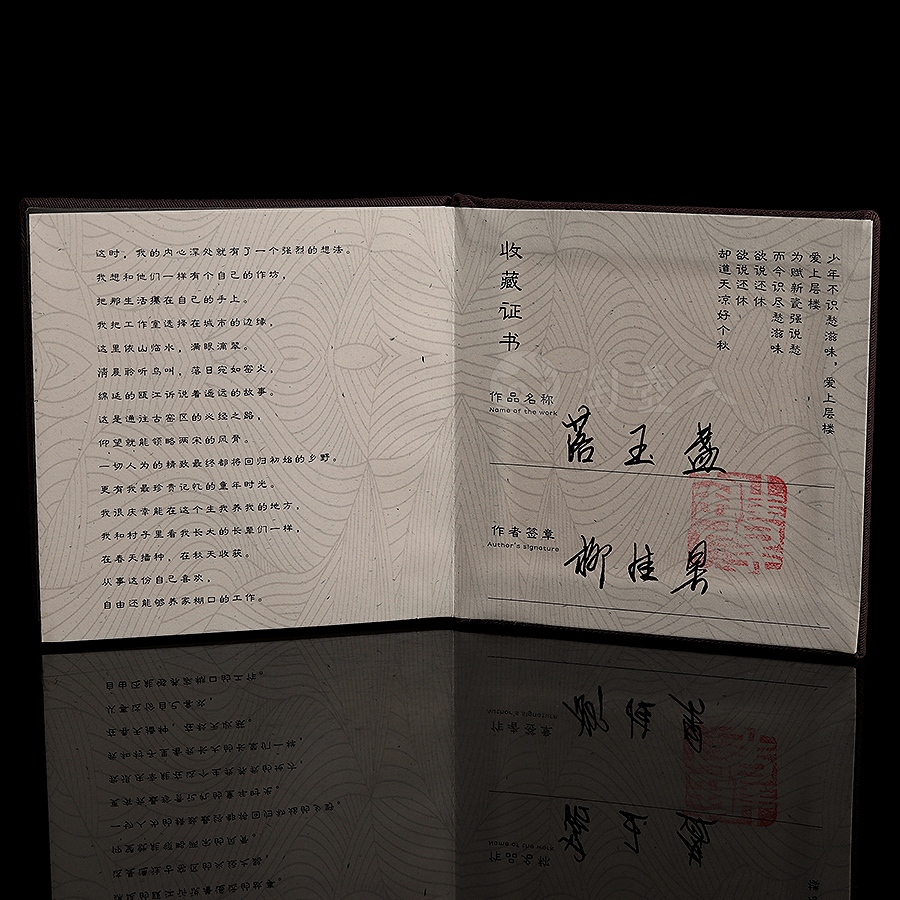 这时，我的内心深处就有了一个强烈的想法。
我想和他们一样有个自己的作坊，
把那生活攥在自己的手上。
我把工作室选择在城市的边缘，
这里依山临水，满眼滴翠。
清晨聆听鸟叫，落日宛如窑火，
绵延的瓯江诉说着遥远的故事。
这是通往古窑区的必经之路，
仰望就能领略两宋的风骨。
一切人为的精致最终都将回归初始的乡野。
更有我最珍贵记忆的童年时光。
我很庆幸能在这个生我养我的地方，
我和村子里看我长大的长辈们一样，
在春天播种，在秋天收获。
从事这份自己喜欢，
自由还能够养家糊口的工作。
收藏证书
少年不识愁滋味，爱上层楼
爱上层楼
为赋新瓷强说愁
而今识尽愁滋味
欲说还休
欲说还休
却道天凉好个秋
作品名称
Name of the work
落玉盏
作者签章
Author's signature
柳佳